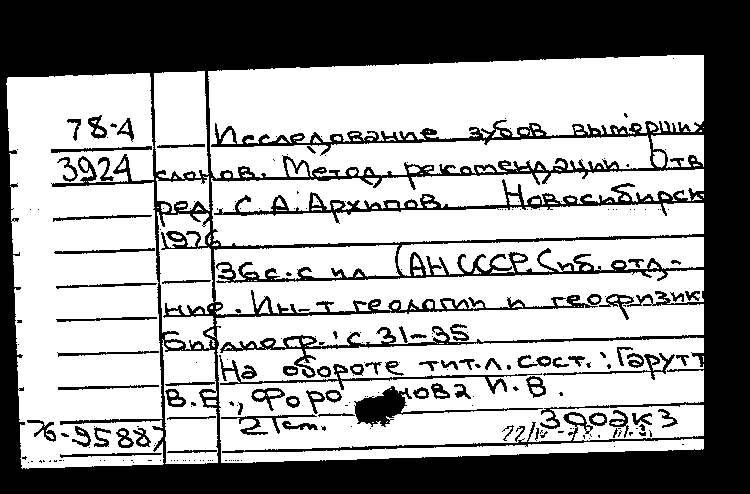 78-4 Исследование зубов вымерших
3924 слонов. Метод. рекомендации. Отв
ред. С.А. Архипов. Новосибирск
1976.
36с. с ил (АН СССР. Сиб. отд-
ние. Ин-т геологии и геофизики
Библиогр.: с. 31-35.
На обороте тит. л. сост.: Гарутт
В.Е., Форо нова И.В.
76-95887 21см. 300экз
22/IV-78.